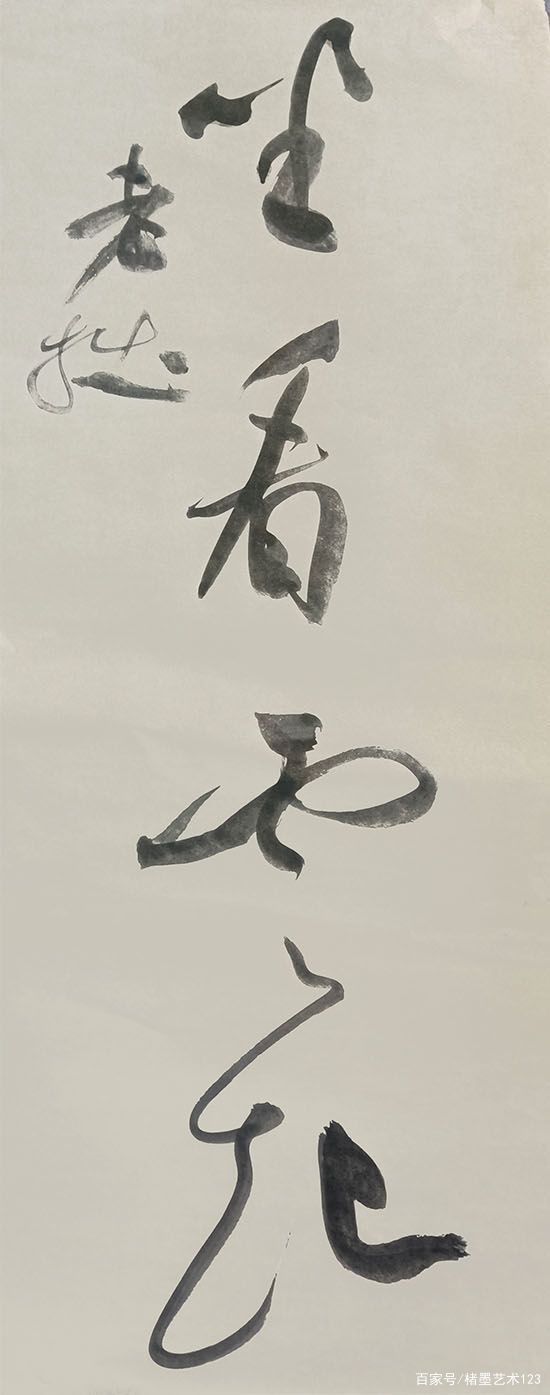 坐看云起
老拙
百家号/楮墨艺术123